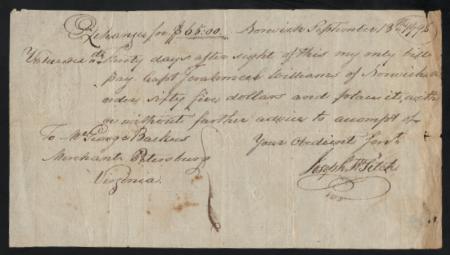 Exchange for $65.00. Norwich September 13th 1796
Thirty days after sight of this my only bill
pay Capt Jerahmeel Williams of Norwich or
order sixty five dollars and place it, with
or without farther advice to accompt of
To Mr George Your Obedient Servt
Merchant Petersburg Joseph H Fitch
Virginia.